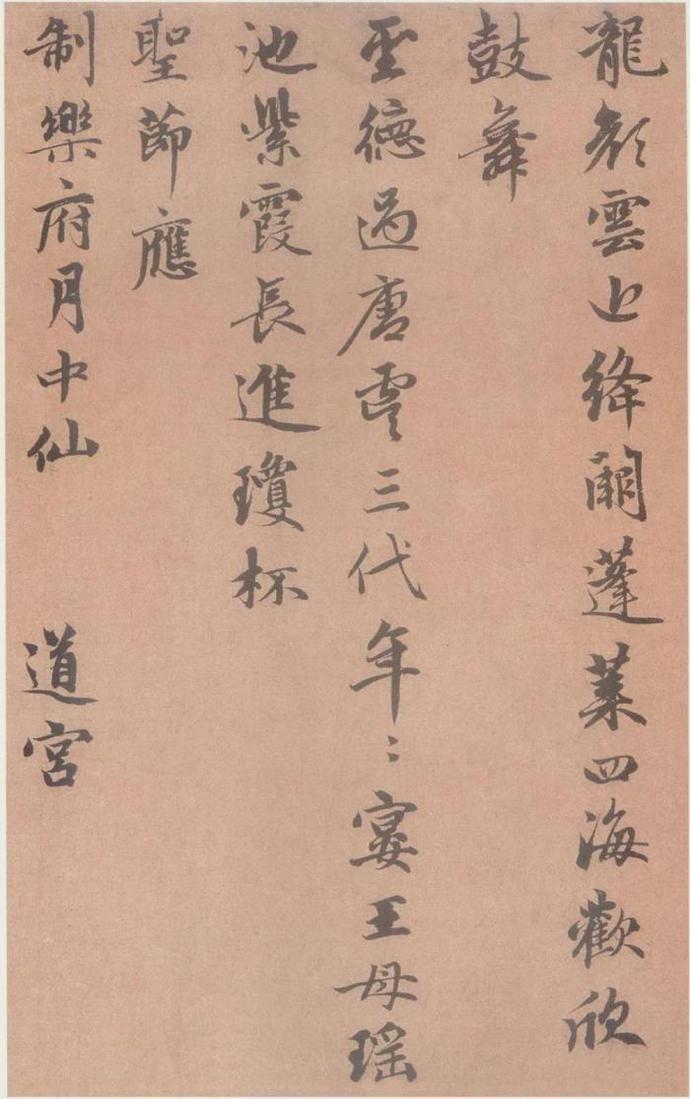 龍顏雲近絳闕蓬萊四海歡欣
鼓舞
聖德過唐虞三代年〻宴王母瑤
池紫霞長進瓊杯
聖節應
制樂府月中仙 道宮